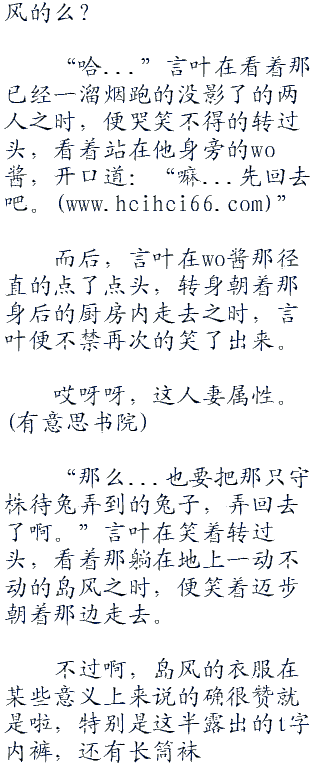 风的么？
“哈...”言叶在看着那
已经一溜烟跑的没影了的两
人之时，便哭笑不得的转过
头，看着站在他身旁的wo
酱，开口道：“嘛...先回去
吧。(www.hcihci66.com)”
而后，言叶在wo酱那径
直的点了点头，转身朝着那
身后的厨房内走去之时，言
叶便不禁再次的笑了出来。
哎呀呀，这人妻属性。
(有意思书院)
“那么...也要把那只守
株待兔弄到的兔子，弄回去
了啊。”言叶在笑着转过
头，看着那躺在地上一动不
动的岛风之时，便笑着迈步
朝着那边走去。
不过啊，岛风的衣服在
某些意义上来说的确很赞就
是啦，特别是这半露出的t字
内裤，还有长筒袜